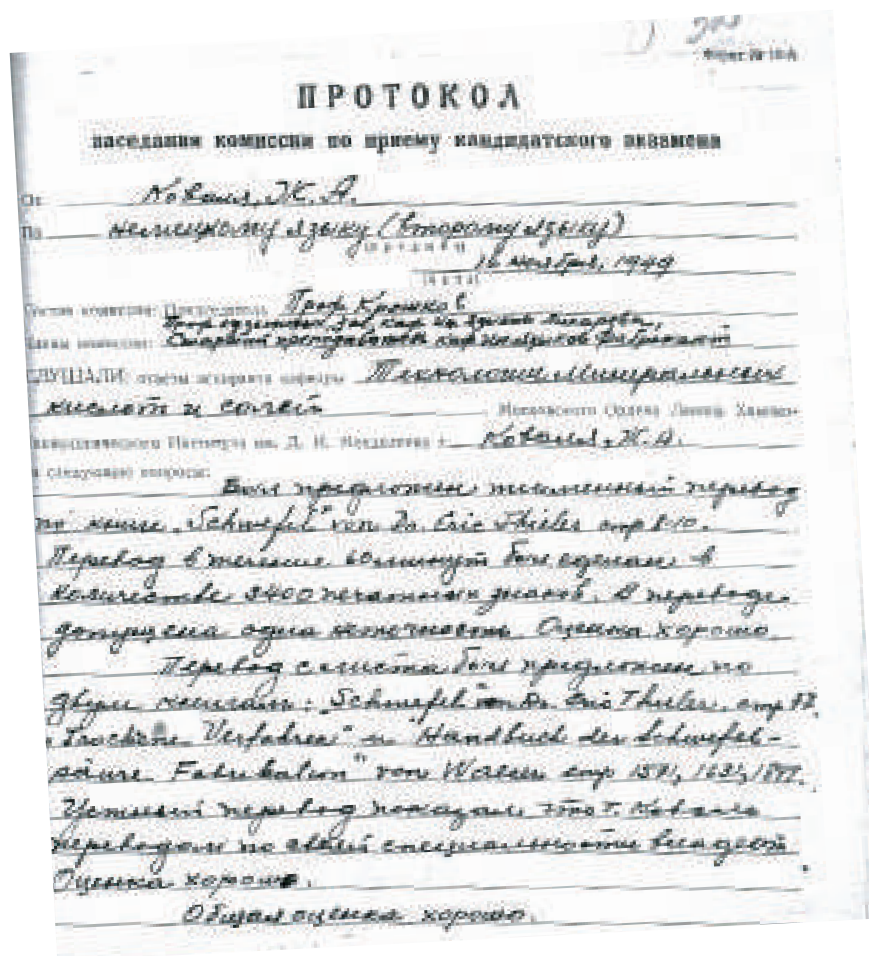 Форма № 10-А
ПРОТОКОЛ
заседания комиссии по приему кандидатского экзамена
От Коваля, Ж. А.
По немецкому языку (второму языку)
(предмет)
16 ноября, 1949
(дата)
Состав комиссии: Председатель: Проф. Крешков
Члены комиссии:
Старший преподаватель каф. ин. языков Фабрикант
СЛУШАЛИ: ответы аспиранта кафедры Технологии Минеральных
кислот и солей Московского Ордена Ленина Химико-
технологического Института им. Д. И. Менделеева т. Коваля, Ж. А.
на следующие вопросы:
Был предложен письменный перевод
по книге „Schwefel" von Dr. Eric Thieler стр 8-10.
Перевод в течение 60 минут был сделан в
количестве 2400 печатных знаков. В переводе
допущена одна неточность. Оценка хорошо.
Перевод с листа был предложен по
двум книгам: „Schwefel" von Dr. Eric Thieler, стр
„Trockene Verfahren" и „Handbuch der Schwefel-
säure Fabrikation" von Waeser стр
Устный перевод показал, что т. Коваль
переводом по своей специальности владеет
Оценка хорошо.
Общая оценка хорошо.